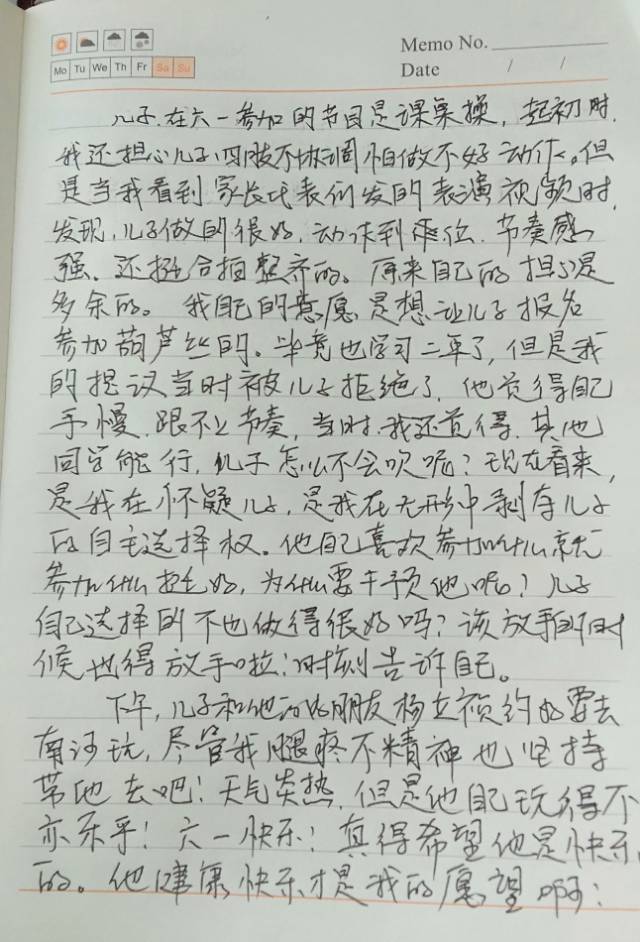 Memo No.
Mo Tu We Th Fr Sa Su
Date / /
儿子在六一参加的节目是课桌操，起初时，
我还担心儿子四肢不协调怕做不好动作。但
是当我看到家长代表们发的表演视频时，
发现，儿子做的很好，动作到位，节奏感
强、还挺合拍整齐的。原来自己的担心是
多余的。我自己的意愿是想让儿子报名
参加葫芦丝的。毕竟也学习二年了，但是我
的提议当时被儿子拒绝了，他觉得自己
手慢，跟不上节奏，当时，我还觉得，其他
同学能行，儿子怎么不会吹呢？现在看来，
是我在怀疑儿子，是我在无形中剥夺儿子
的自主选择权。他自己喜欢参加什么就
参加什么挺好，为什么要干预他呢？儿子
自己选择的不也做得很好吗？该放手的时
候也得放手啦！时刻告诉自己。
下午，儿子和他的好朋友杨立祯约好要去
南河玩，尽管我腿疼不精神也坚持
带他去吧！天气炎热，但是他自己玩得不
亦乐乎！六一快乐！真得希望他是快乐
的。他健康快乐才是我的愿望啊！